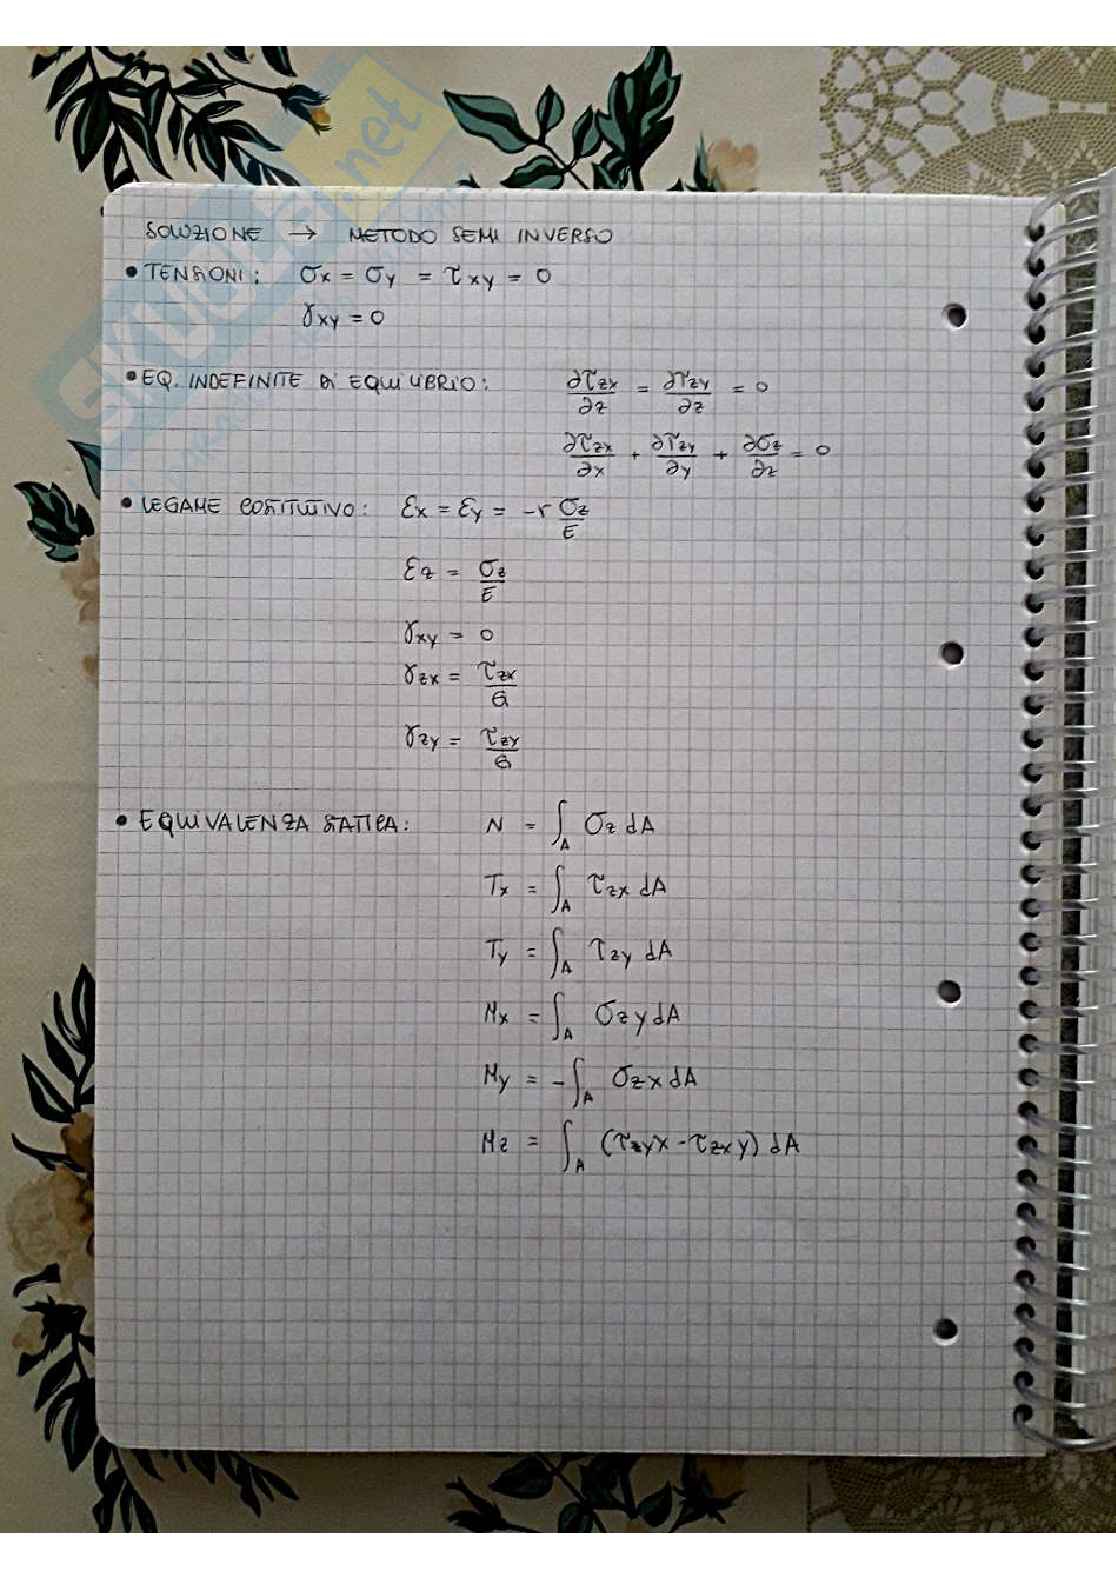 SOLUZIONE → METODO SEMI INVERSO
• TENSIONI: σx = σy = τxy = 0
γxy = 0
• EQ. INDEFINITE DI EQUILIBRIO: ∂τzx/∂z = ∂τzy/∂z = 0
∂τzx/∂x + ∂τzy/∂y + ∂σz/∂z = 0
• LEGAME COSTITUTIVO: εx = εy = -ν σz/E
εz = σz/E
γxy = 0
γzx = τzx/G
γzy = τzy/G
• EQUIVALENZA STATICA: N = ∫A σz dA
Tx = ∫A τzx dA
Ty = ∫A τzy dA
Mx = ∫A σz y dA
My = -∫A σz x dA
Mz = ∫A (τzy x - τzx y) dA
SKUOLA.net